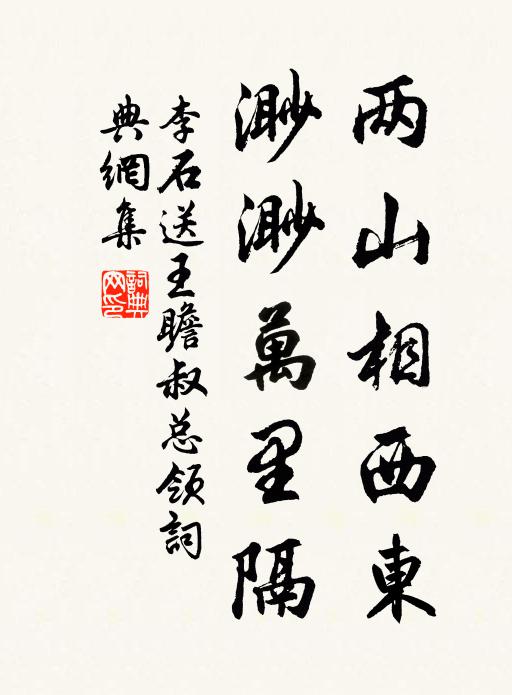 两山相西東
渺渺萬里隔
李石送王瞻叔总領詞
典網集
詞典
网印